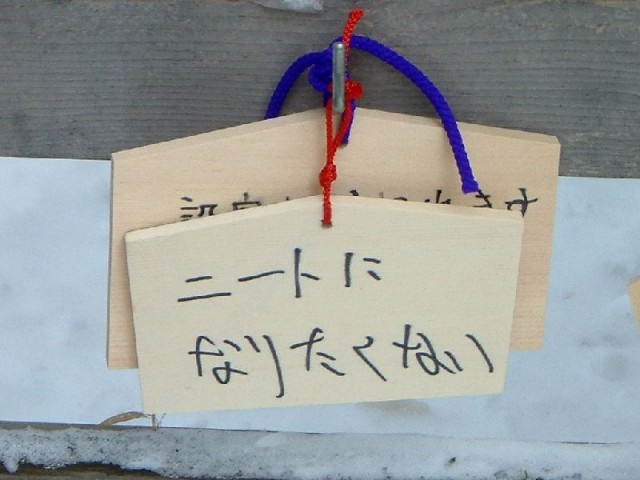 ニートに
なりたくない